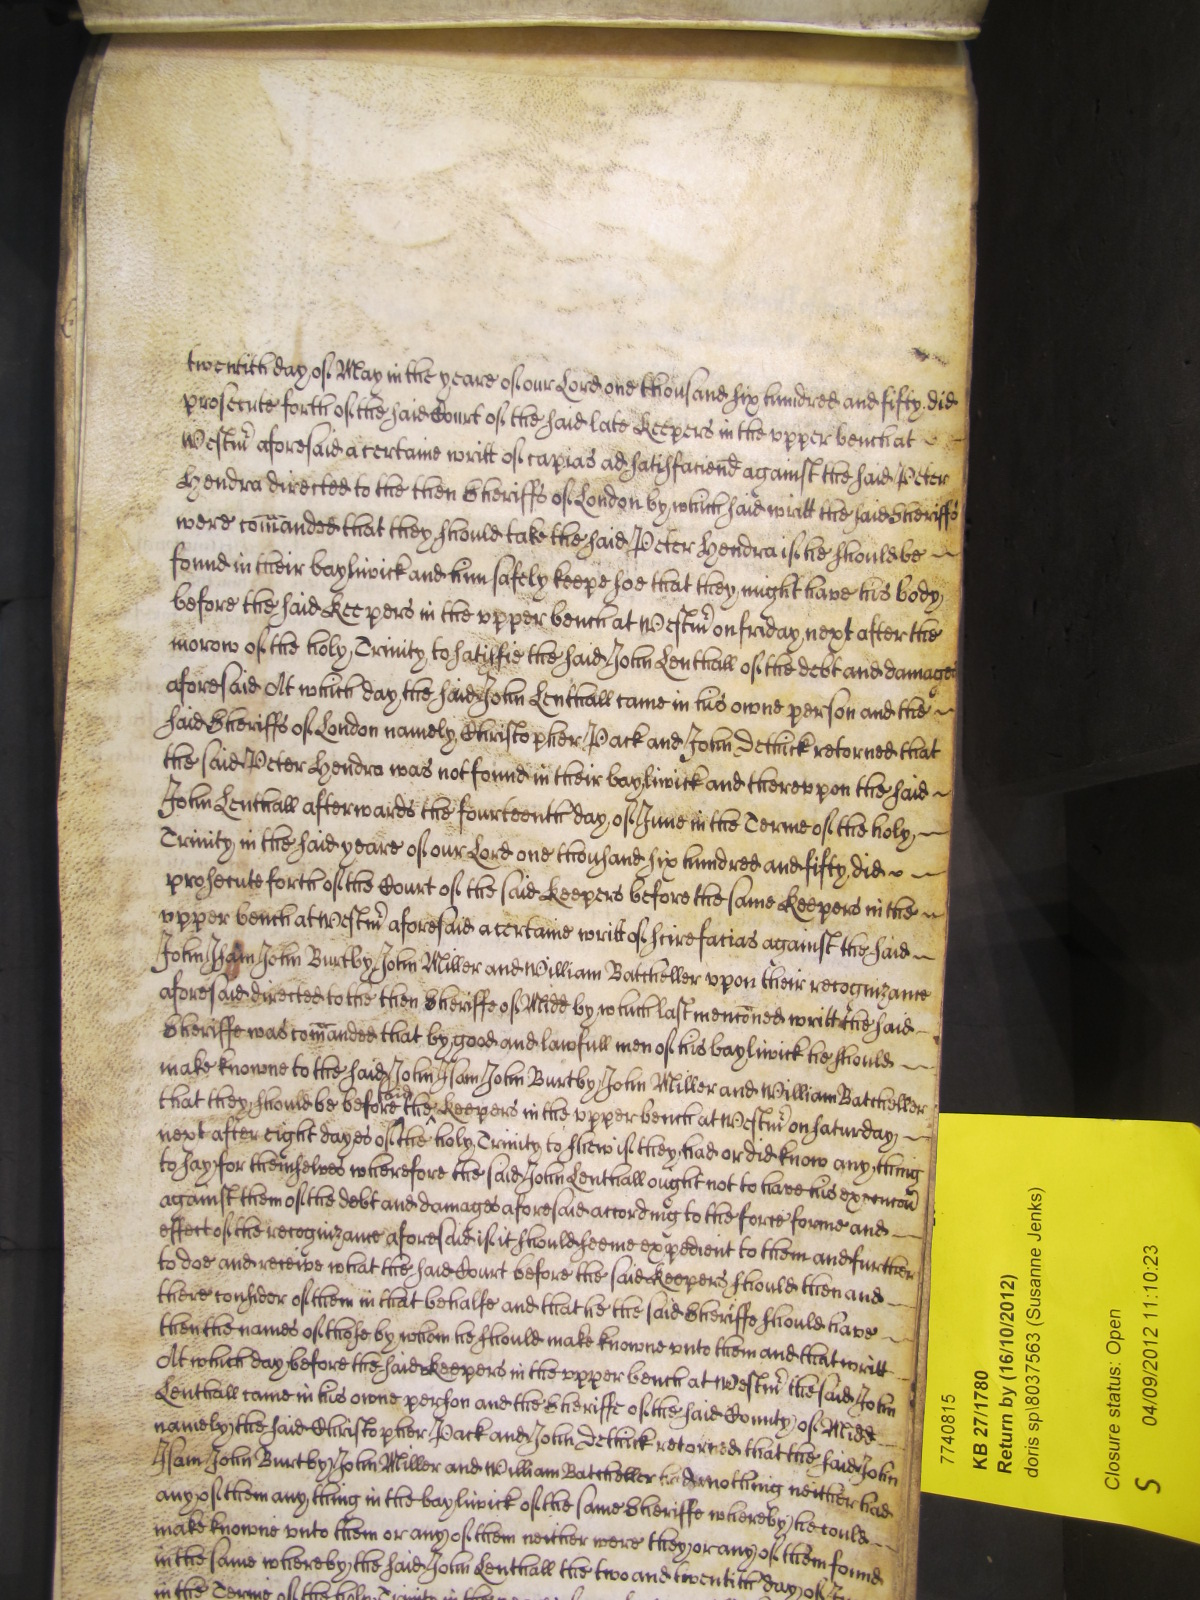 twentith day of May in the yeare of our Lord one thousand six hundred and fifty did
prosecute forth of the said Court of the said late Keepers in the vpper bench at
Westm̃ aforesaid a certaine writt of capias ad satisfaciend̃ against the said Peter
Hendra directed to the then Sheriffs of London by which said writt the said Sheriffs
were com̃anded that they should take the said Peter Hendra if he should be
found in their bayliwick and him safely keepe soe that they might have his body
before the said Keepers in the vpper bench at Westm̃ on friday next after the
morow of the holy Trinity to satisfie the said John Lenthall of the debt and damages
aforesaid At which day the said John Lenthall came in his owne person and the
said Sheriffs of London namely Christopher Pack and John Dethick retorned that
the said Peter Hendra was not found in their bayliwick and therevpon the said
John Lenthall afterwards the fourteenth day of June in the Terme of the holy
Trinity in the said yeare of our Lord one thousand six hundred and fifty did
prosecute forth of the Court of the said Keepers before the same Keepers in the
vpper bench at Westm̃ aforesaid a certaine writt of scire facias against the said
John Isam John Burtby John Miller and William Batcheller vpon their recognizance
aforesaid directed to the then Sheriffe of Midd by which last menc̃oned writt the said
Sheriffe was com̃anded that by good and lawfull men of his bayliwick he should
make knowne to the said John Isam John Burtby John Miller and William Batcheller
that they should be before the said Keepers in the vpper bench at Westm̃ on saturday
next after eight dayes of the holy Trinity to shew if they had or did know any thing
to say for themselves wherefore the said John Lenthall ought not to have his execuc̃on
against them of the debt and damages aforesaid according to the force forme and
effect of the recognizance aforesaid if it should seeme expedient to them and further
to doe and receive what the said Court before the said Keepers should then and
there consider of them in that behalfe and that he the said Sheriffe should have
then the names of those by whom he should make knowne vnto them and that writt
At which day before the said Keepers in the vpper bench at Westm̃ the said John
Lenthall came in his owne person and the Sheriffe of the said County of Midd
namely the said Christopher Pack and John Dethick retorned that the said John
Isam John Burtby John Miller and William Batcheller had nothing neither had
any of them any thing in the bayliwick of the same Sheriffe whereby he could
make knowne vnto them or any of them neither were they or any of them found
in the same whereby the said John Lenthall the two and twentith day of
in the Terme of the holy Trinity in the
7740815
KB 27/1780
Return by (16/10/2012)
doris sp\8037563 (Susanne Jenks)
Closure status: Open
04/09/2012 11:10:23
S